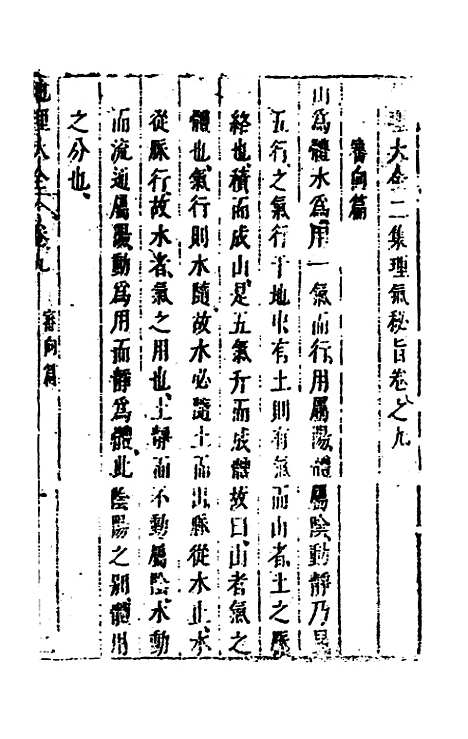 理大全二集理氣秘旨卷之九
審向篇
山為體水為用一氣而行用屬陽體屬陰動靜乃
五行之氣行于地中有土則有氣而山者土之脉
絡也積而成山是五氣行而成體故曰山者氣之
體也氣行則水隨故水必隨土而出脉從水止水
從脉行故水者氣之用也土靜而不動屬陰水動
而流通屬陽動為用而靜為體此陰陽之別體用
之分也
地理大全二集卷九
審向篇
一